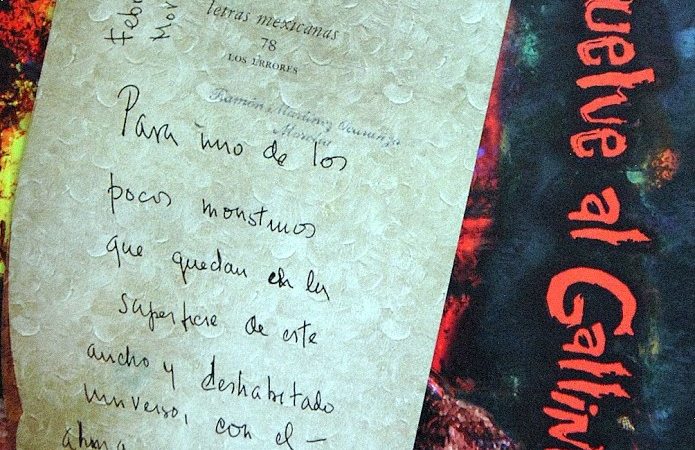 Febr
Mor
letras mexicanas
78
LOS ERRORES
Ramón Martínez Ocaranza
Morelia
Para uno de los
pocos monstruos
que quedan en la
superficie de este
ancho y deshabitado
universo, con el—
vuelve al Gallin